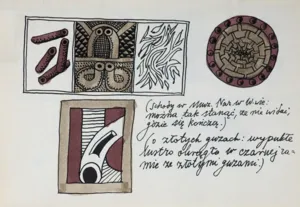 (schody w Muz. Nar. w W-wie:
można tak stanąć, że nie widać,
gdzie się kończą.)
(o złotych guzach: wypukłe
lustro okrągłe w czarnej ra-
mie ze złotymi guzami.)